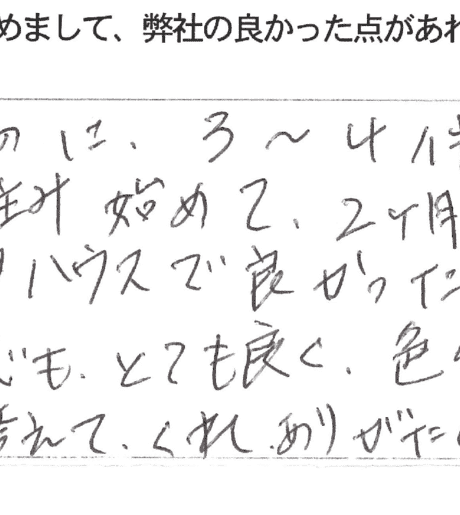 めまして、弊社の良かった点があれ
のに、3〜4件
住み始めて、2ヶ月
ハウスで良かった
でも、とても良く、色
考えて、くれ、ありがた